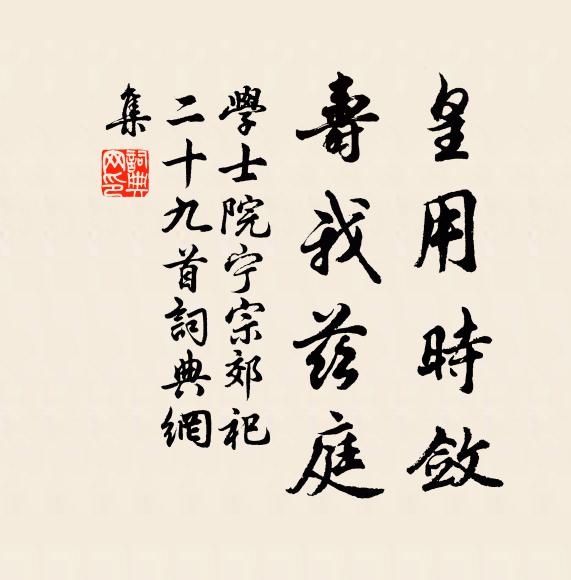 皇用時斂
壽我茲庭
學士院宁宗郊祀
二十九首詞典網
集
詞典网印